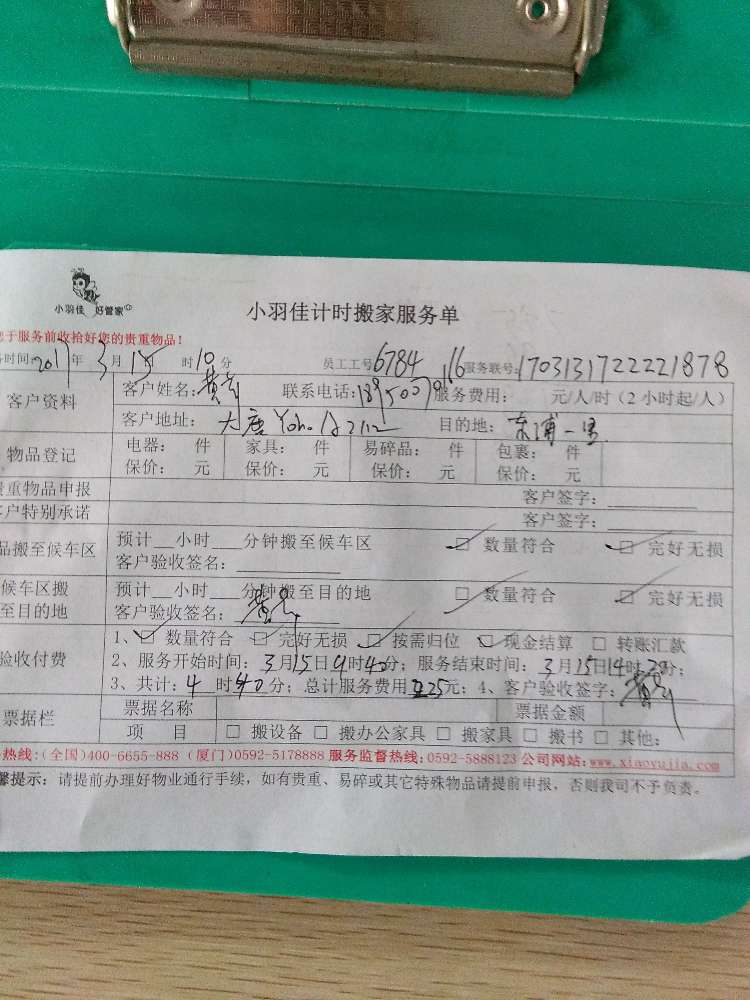 小羽佳 好管家
小羽佳计时搬家服务单
于服务前收拾好您的贵重物品!
时间:2017年3月15 时10分 员工工号6784 服务联号:1703131722221878
客户资料 客户姓名: 联系电话: 服务费用: 元/人/时(2小时起/人)
客户地址:大唐 目的地:东浦一里
物品登记 电器: 件 家具: 件 易碎品: 件 包裹: 件
保价: 元 保价: 元 保价: 元 保价: 元
重物品申报 客户签字:
户特别承诺 客户签字:
品搬至候车区 预计__小时___分钟搬至候车区 □ 数量符合 □ 完好无损
客户验收签名:
候车区搬至目的地 预计__小时___分钟搬至目的地 □ 数量符合 □ 完好无损
客户验收签名:
验收付费 1、□ 数量符合 □ 完好无损 □ 按需归位 □ 现金结算 □ 转账汇款
2、服务开始时间:3月15日9时40分;服务结束时间:3月15日14时20分;
3、共计:4时40分;总计服务费用 元;4、客户验收签字:
票据栏 票据名称 票据金额
项 目 □ 搬设备 □ 搬办公家具 □ 搬家具 □ 搬书 □ 其他:
热线:(全国)400-6655-888 (厦门)0592-5178888 服务监督热线:0592-5888123 公司网站:www.xiaoyujia.com
馨提示:请提前办理好物业通行手续,如有贵重、易碎或其它特殊物品请提前申报,否则我司不予负责。